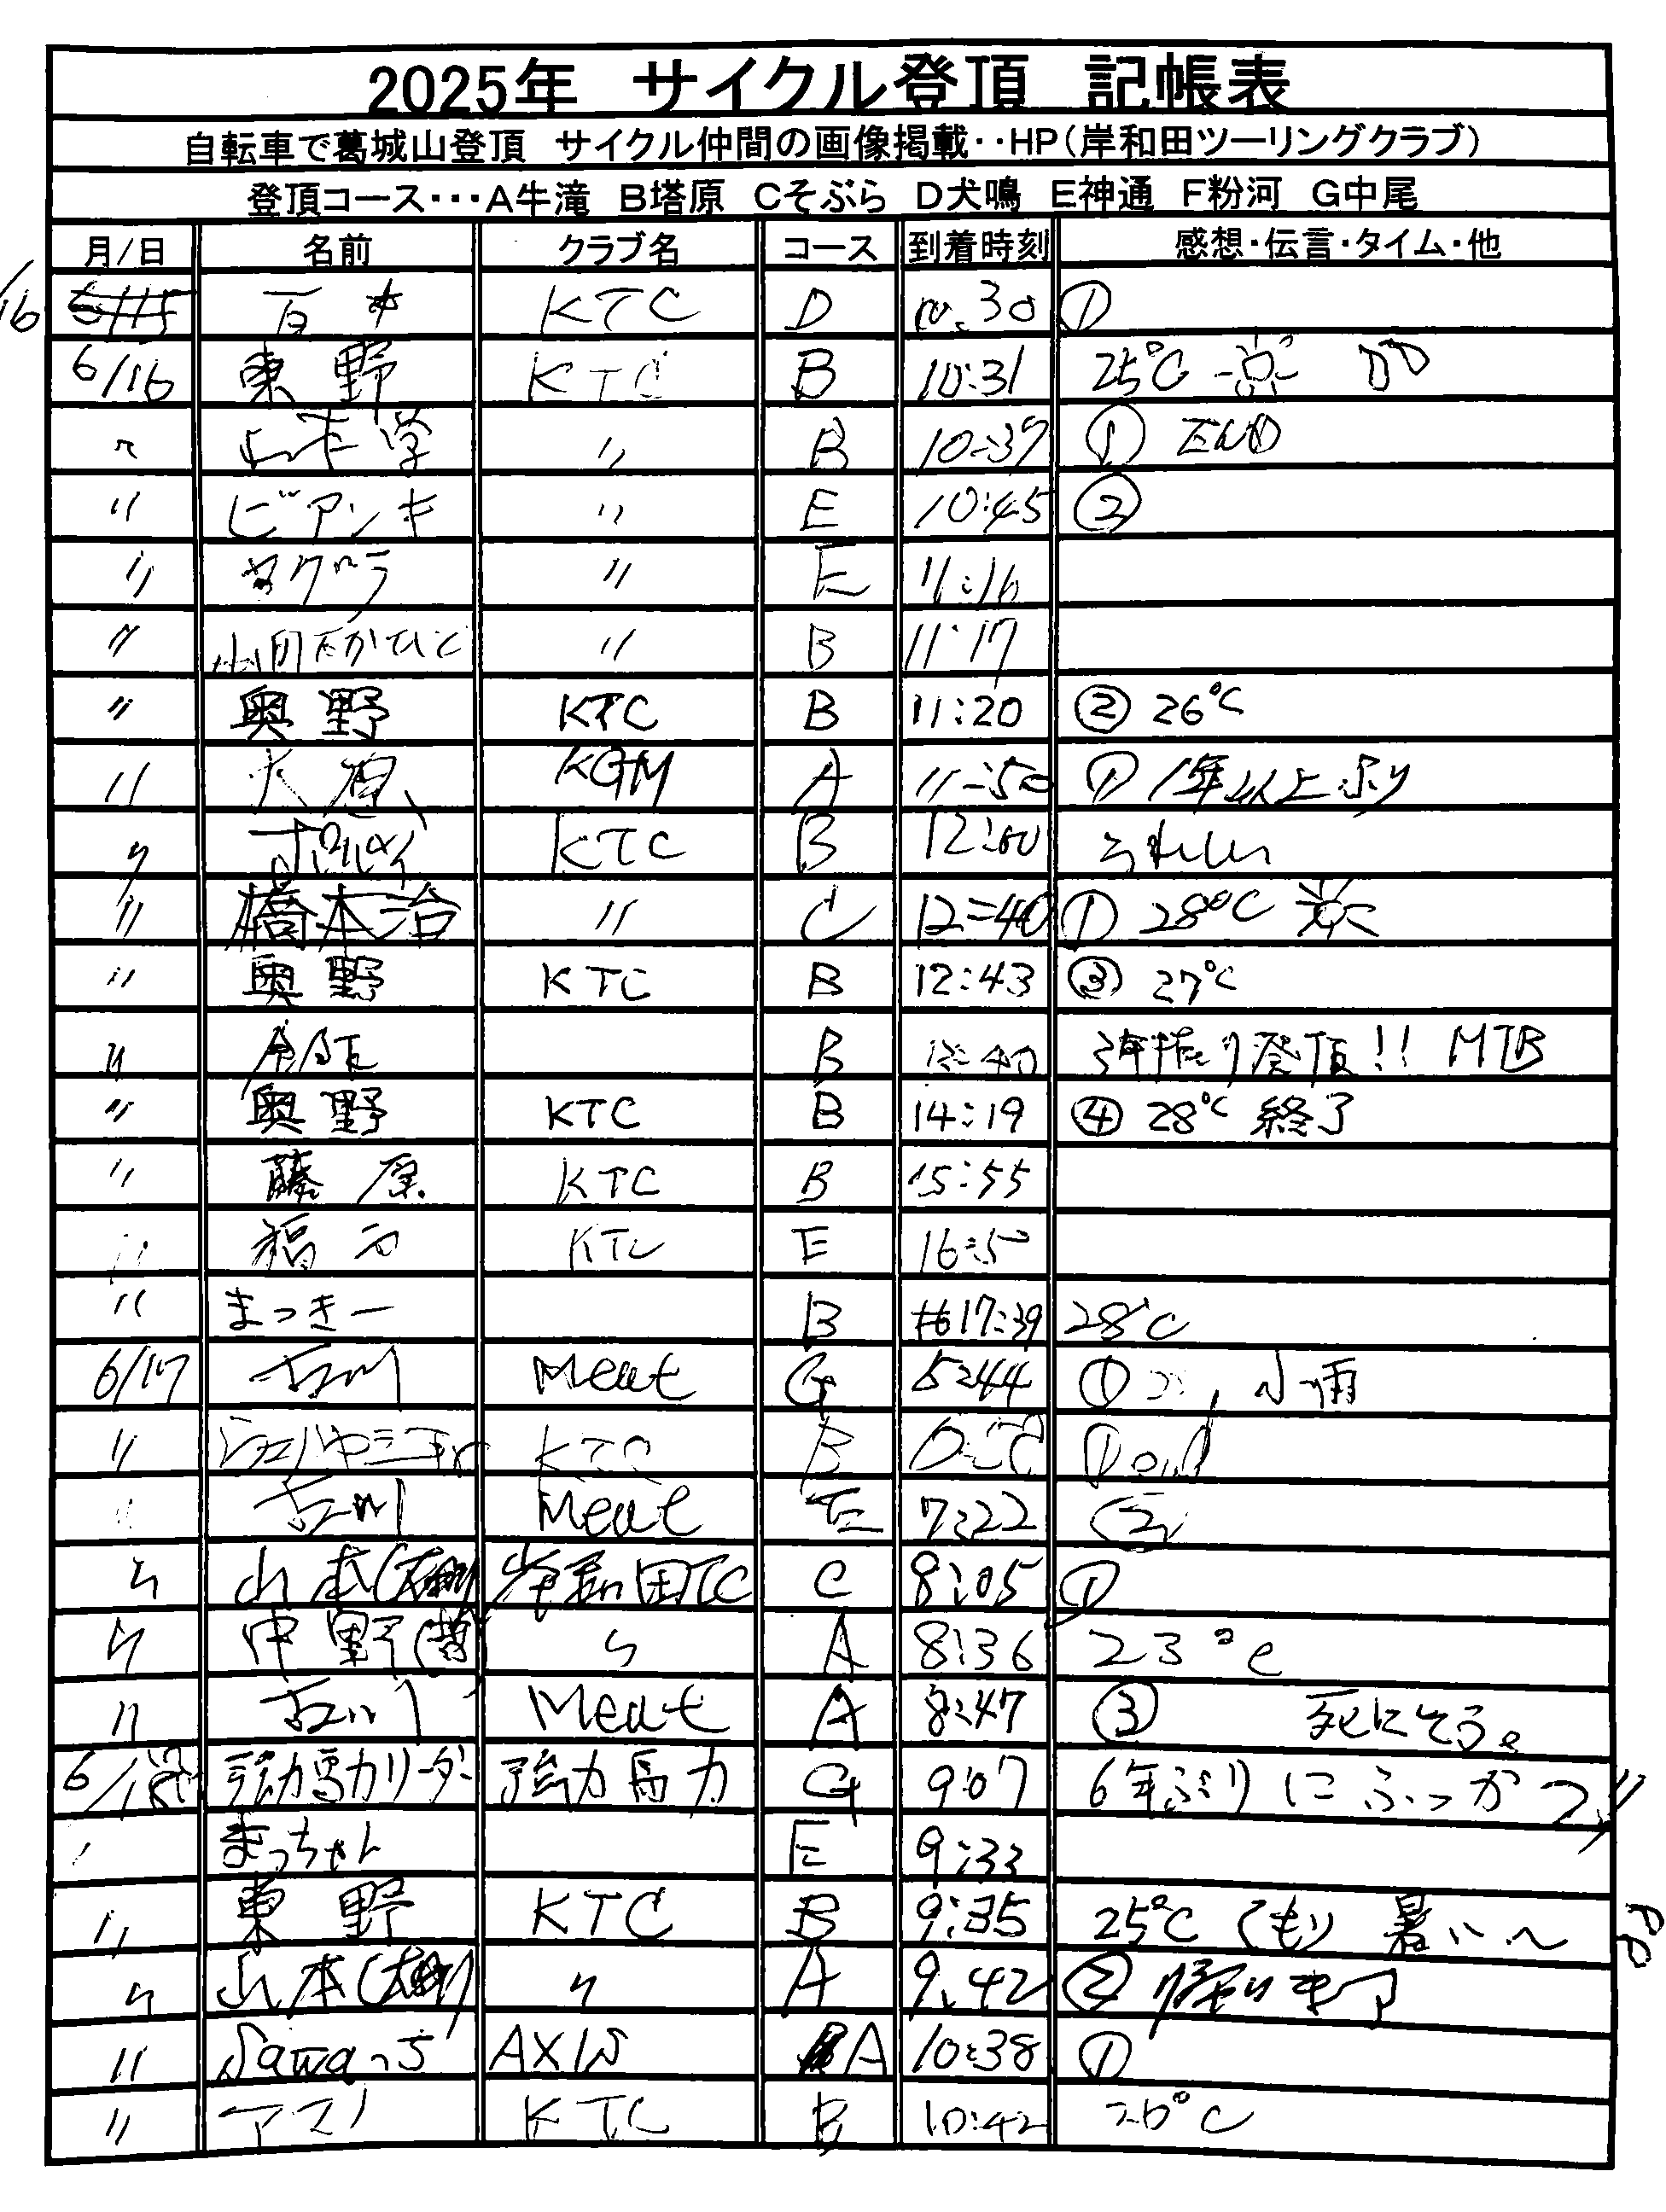 2025年 サイクル登頂 記帳表
自転車で葛城山登頂 サイクル仲間の画像掲載‥HP(岸和田ツーリングクラブ)
登頂コース･･･A牛滝 B塔原 Cそぶら D犬鳴 E神通 F粉河 G中尾
月/日 名前 クラブ名 コース 到着時刻 感想・伝言・タイム・他
/16 KTC D 10:30 ①
6/16 東野 KTC B 10:31 25℃
〃 山本学 〃 B 10:37 ①
〃 ビアンキ 〃 E 10:45 ②
〃 〃 E 11:16
〃 たかひと 〃 B 11:17
〃 奥野 KTC B 11:20 ② 26℃
〃 大原 KGM A 11:50 ① 1年以上ぶり
〃 KTC B 12:00 うれしい
〃 橋本治 〃 C 12:40 ① 28℃
〃 奥野 KTC B 12:43 ③ 27℃
〃 B 登頂!! MTB
〃 奥野 KTC B 14:19 ④ 28℃ 終了
〃 藤原 KTC B 15:55
〃 KTC E 16:50
〃 まっきー B 17:39 28℃
6/17 古川 Meat G 5:44 ① 小雨
〃 KTC B ①
〃 古川 Meat E 7:22 ②
〃 山本 岸和田TC C 8:05 ①
〃 中野 〃 A 8:36 23℃
〃 古川 Meat A 8:47 ③ 死にそう。
6/ 強力馬力リーダー 強力馬力 G 9:07 6年ぶりにふっかつ
〃 まっちゃん E 9:33
〃 東野 KTC B 9:35 25℃ くもり 暑い〜
〃 山本 〃 A 9:42 ②
〃 Sawaっち AXIS A 10:38 ①
〃 KTC B 10:42 26℃